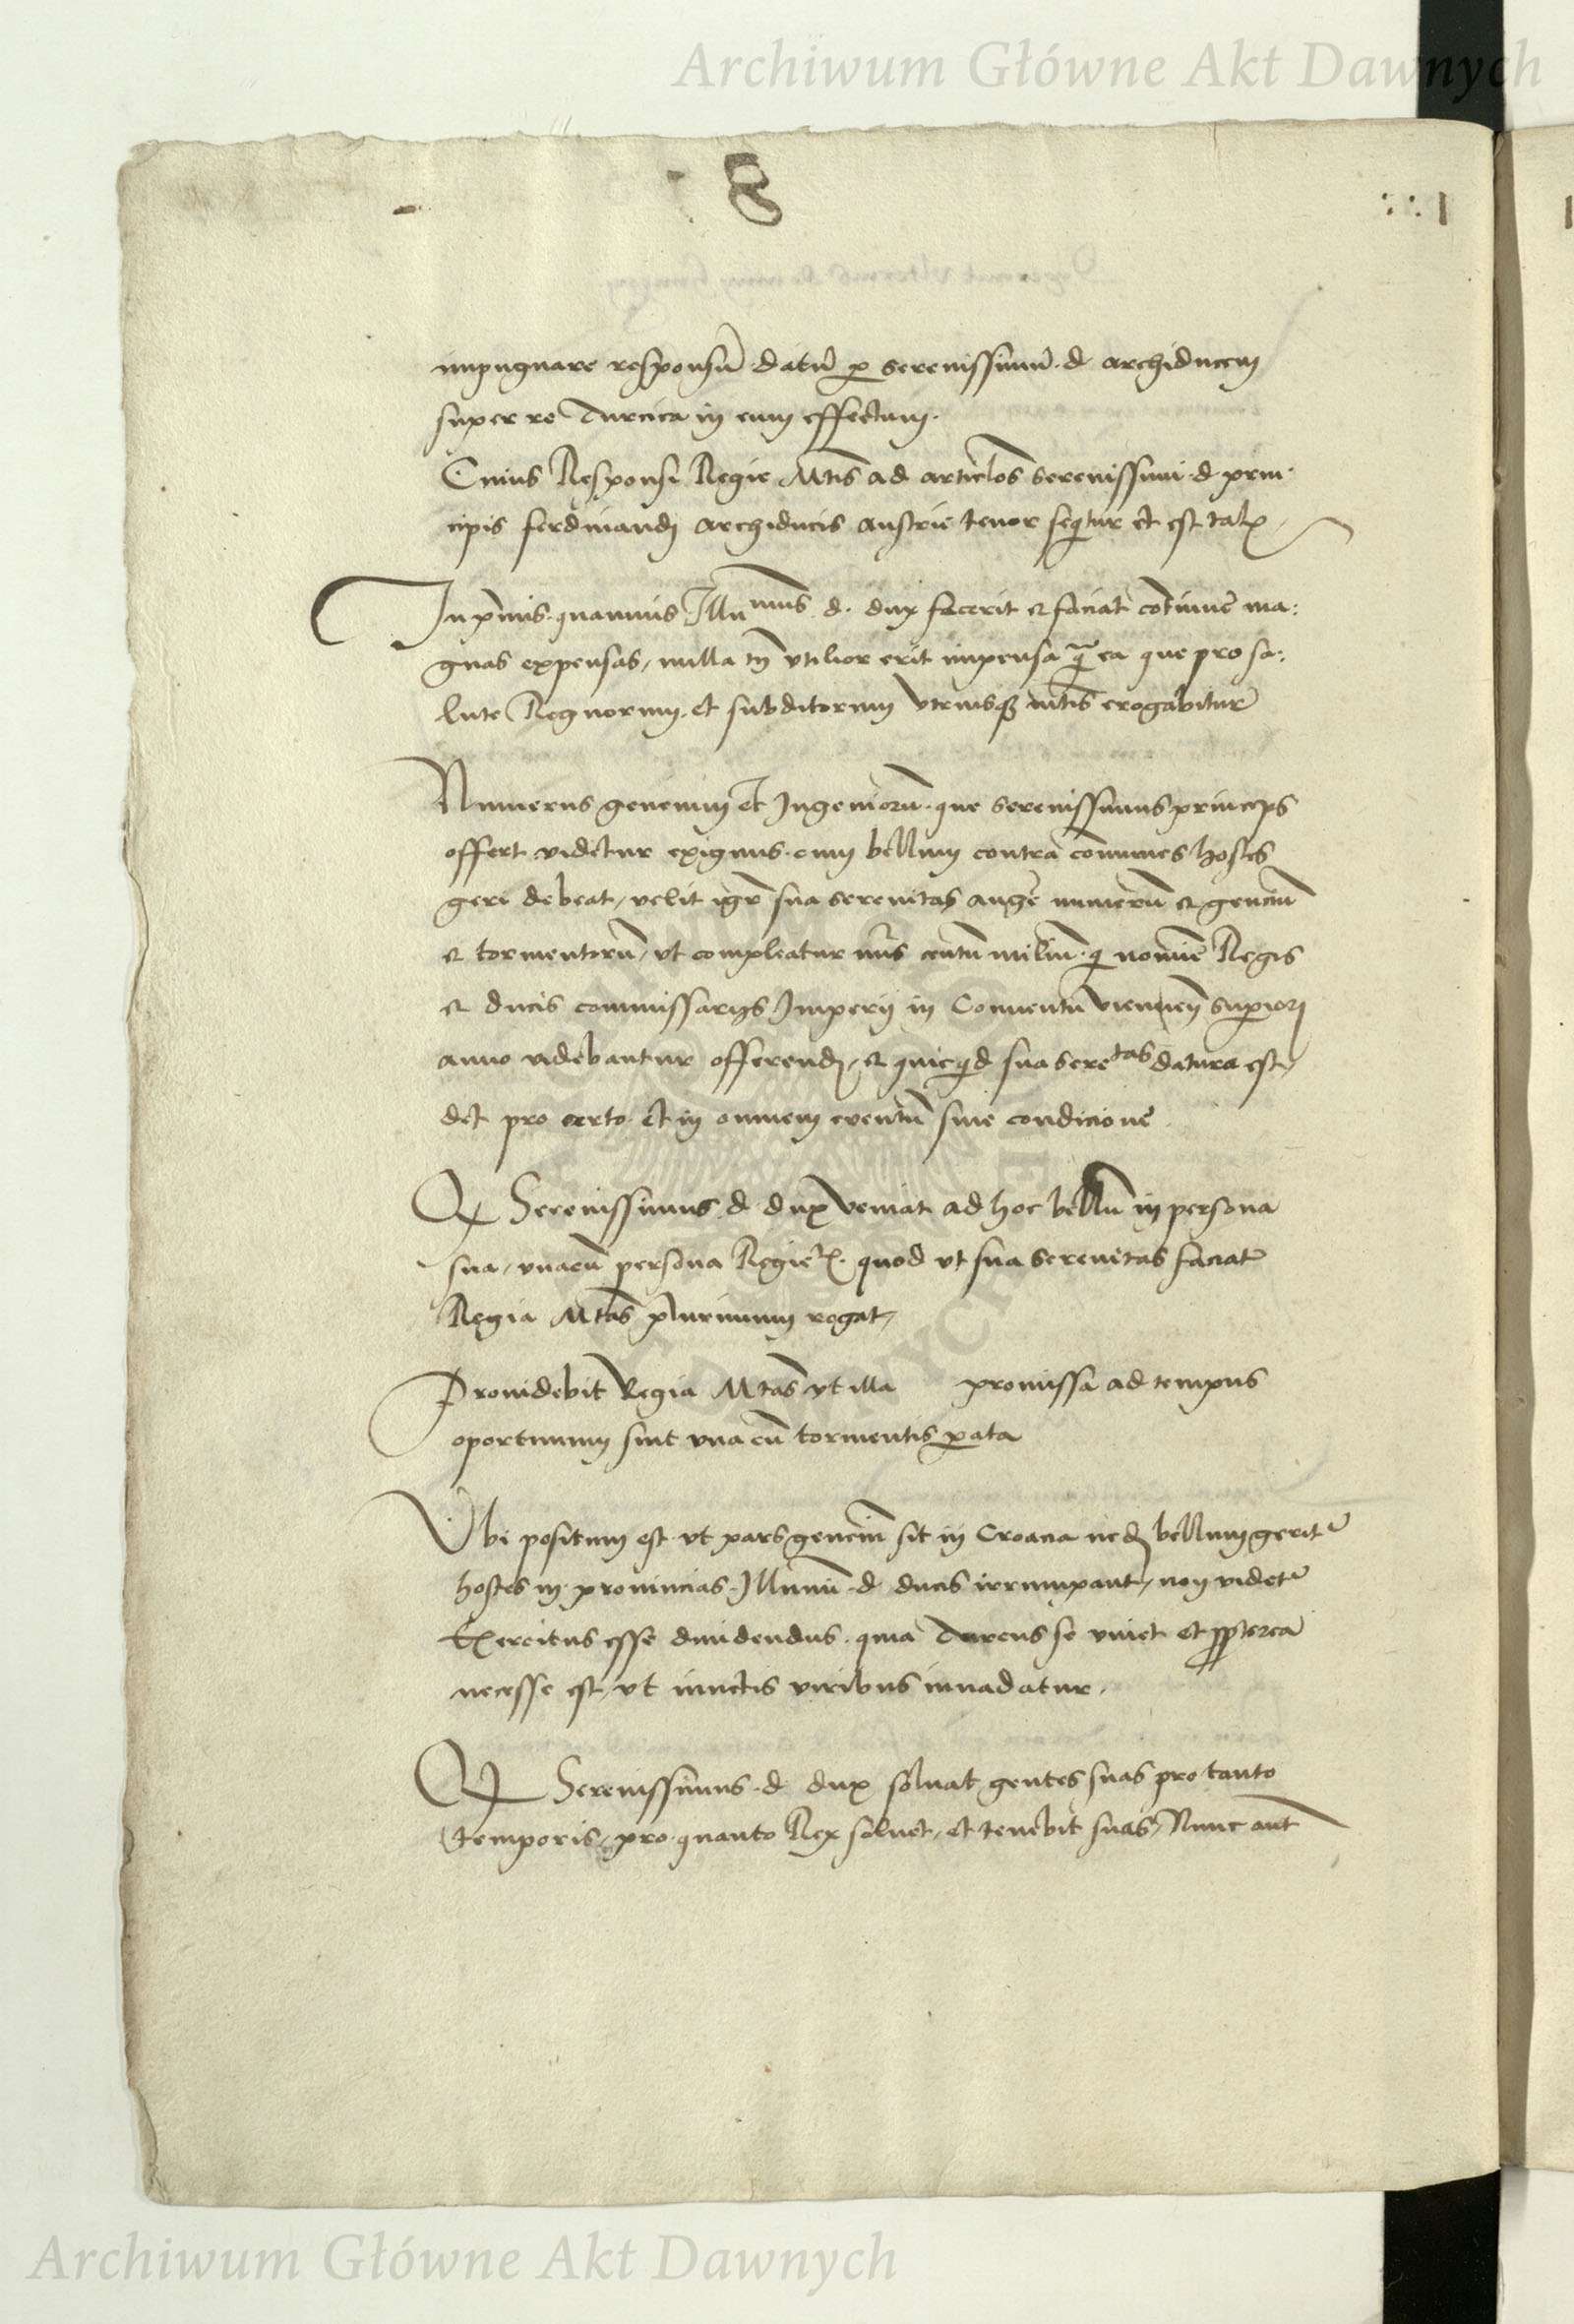 Archiwum Główne Akt Dawnych
8
impugnare responsū datū p serenissimū d archiducem
super re Turcica in eum effectum.
Cuius Responsi Regie Mtis ad articlos serenissimi d prin
cipis ferdinandj archiducis austrie tenor seqtur et est talis
In pmis quamuis Illu mus d. dux fecerit et faciat cotinue ma:
gnas expensas, nulla tn vtilior erit impensa q ea que pro sa:
lute Regnorum et subditorum vtriusq mtis erogabitur
Numerus gencium et Ingeniorū que serenissimus princeps
offert videtur exiguus cum bellum contra comunes hostes
geri debeat, velit igr sua serenitas augere numerū et genciū
et tormentorū, vt compleatur nrus centū miliū q nomine Regis
et ducis commissarijs Imperij in Conuentu viennen superiorj
anno videbantur offerendj, et quicqd sua sere tas datura est,
det pro certo et in omnem euentū sine condicione
Q Serenissimus d dux veniat ad hoc bellū in persona
sua, vnacū persona Regie quod vt sua serenitas faciat
Regia Mtas plurimum rogat,
Prouidebit Regia Mtas vt illa promissa ad tempus
oportunum sint vna cū tormentis pata
Vbi positum est vt pars genciū sit in Croacia ne dj bellum gerit
hostes in prouincias Illumi d ducis irrumpant, non videt
Exercitus esse diuidendus quia Turcus se vniet et ppterea
necesse est, vt iunctis viribus inuadatur.
Q Serenissimus d dux soluat gentes suas pro tanto
temporis, pro quanto Rex soluet, et tenebit suas, Nunc aut
Archiwum Główne Akt Dawnych